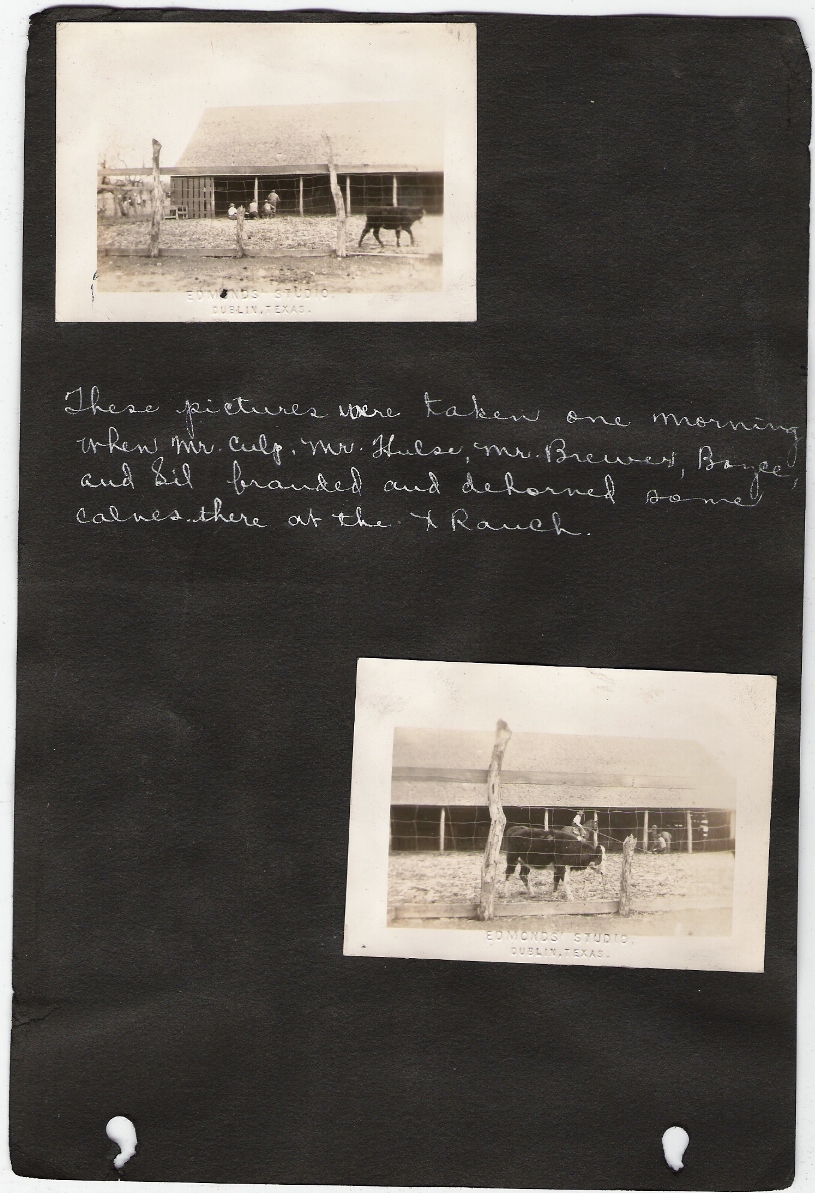 EDMONDS' STUDIO,
DUBLIN, TEXAS.
These pictures were taken one morning
when Mr. Culp, Mr. Hulse, Mr. Brewer, Boyce,
and Sil branded and dehorned some
calves there at the X Ranch.
EDMONDS' STUDIO,
DUBLIN, TEXAS.